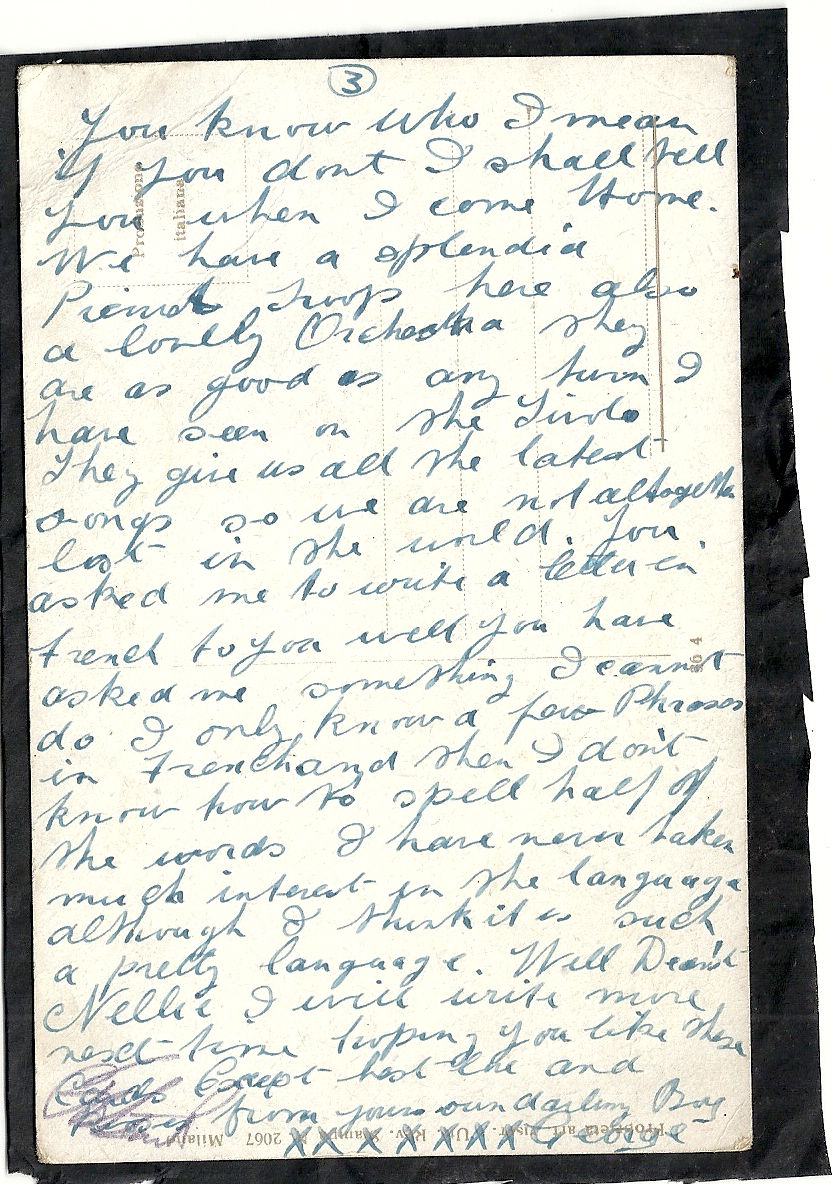 3
You know who I mean
if you dont I shall tell
you when I come Home.
We have a splendid
Pierrot Troop here also
a lovely Orchestra they
are as good as any turn I
have seen on the Tivoli
They give us all the latest
songs so we are not altogether
lost in the world. You
asked me to write a letter in
French to you well you have
asked me something I cannot
do I only know a few Phrases
in French and then I don't
know how to spell half of
the words I have never taken
much interest in the language
although I think it is such
a pretty language. Well Dearest
Nellie I will write more
next time hoping you like these
Cards Except best love and
Kisses from yours own darling Boy
XXXXXXX George
Produzione
italiana
Proprietà artist. Riv. Stampa N. 2067 Milano